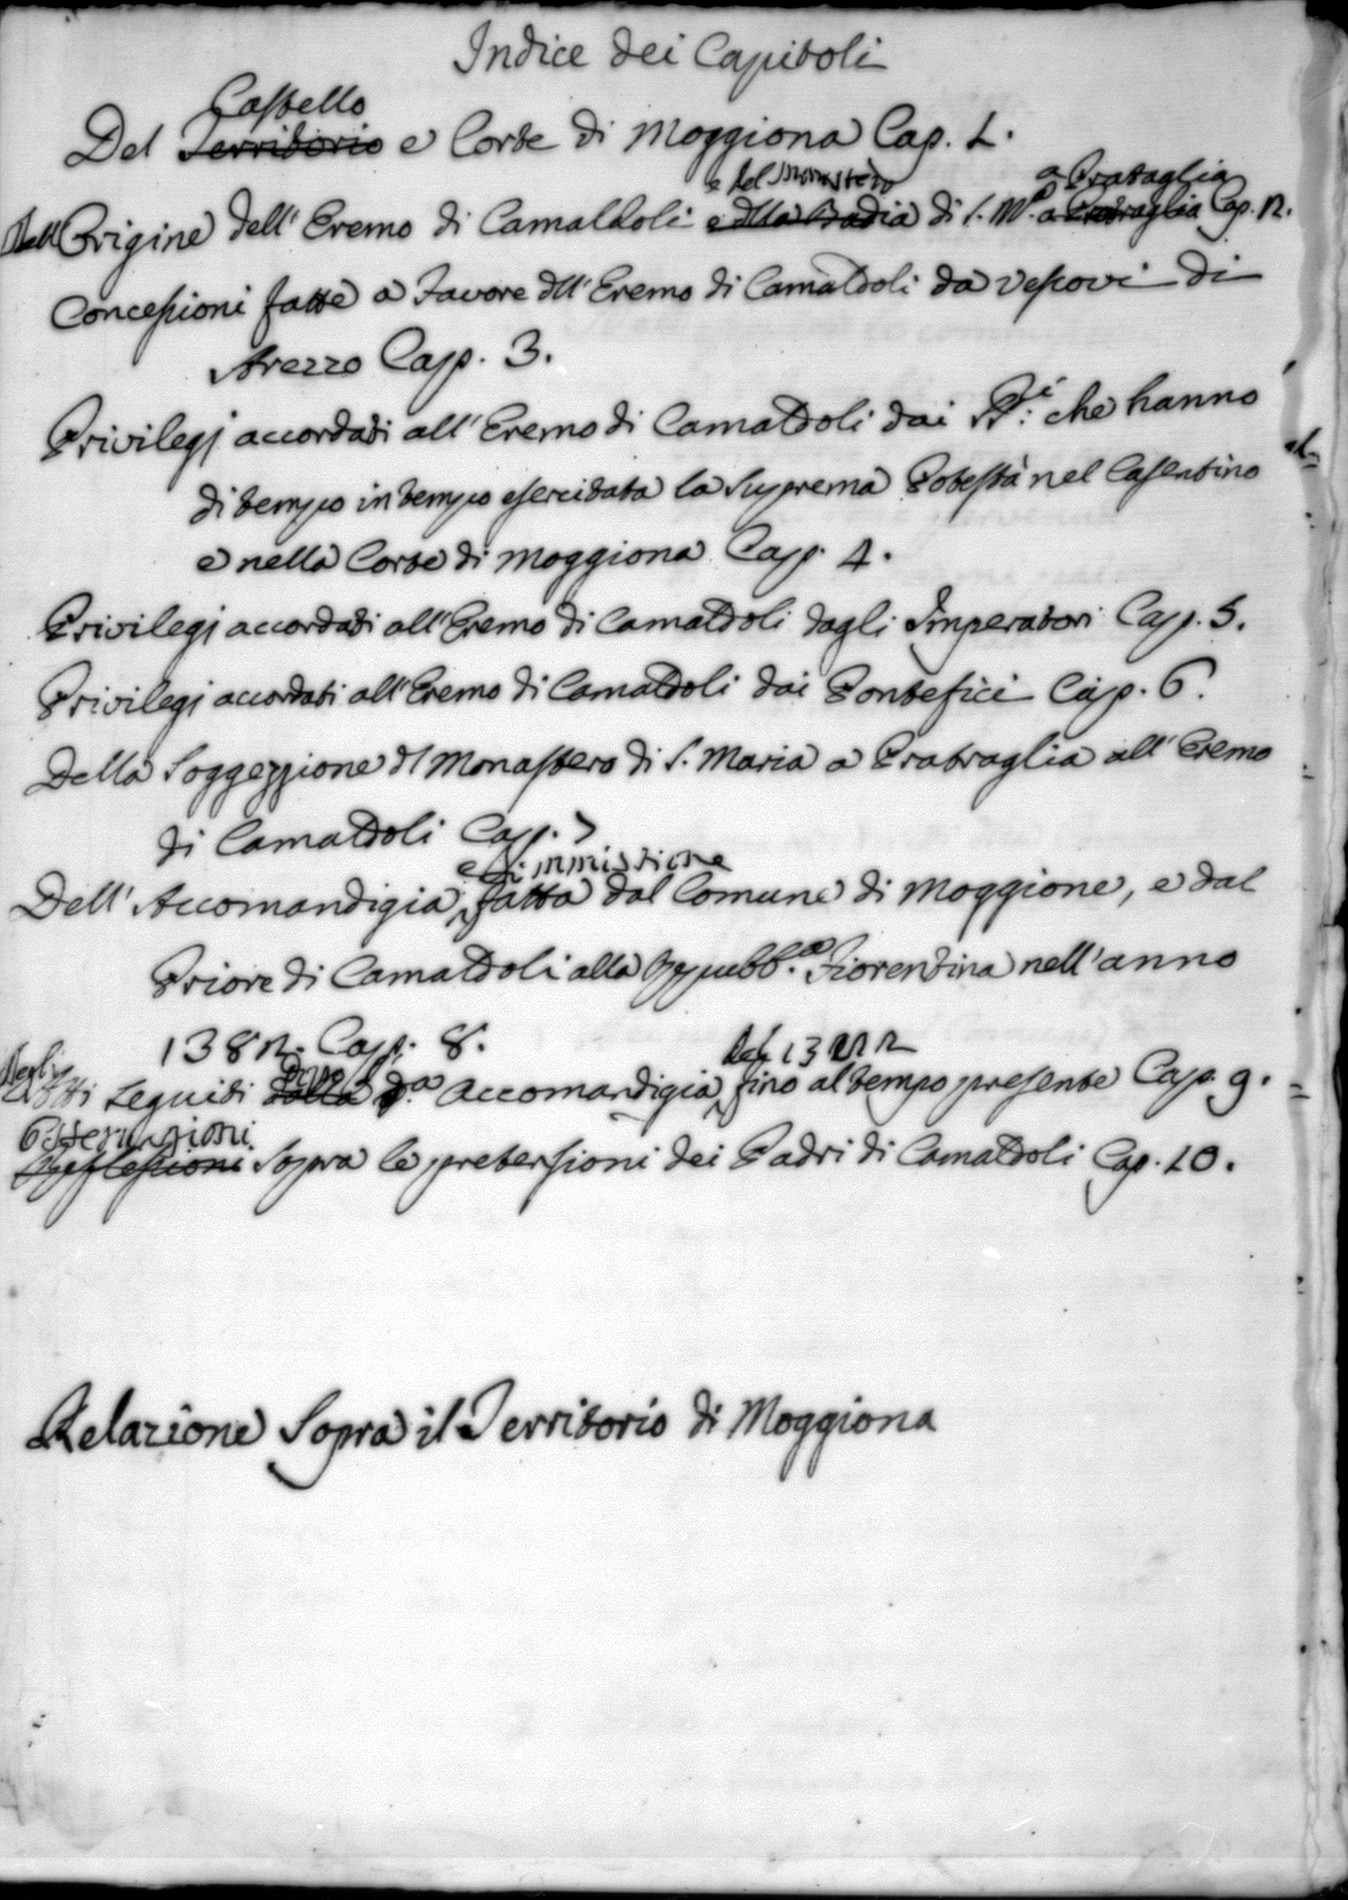 Indice dei Capitoli
Castello
Del Territorio e Corte di Moggiona Cap. 1.
e del Monastero a Prataglia
Dell'Origine dell'Eremo di Camaldoli e dlla Badia di S. Mª a Pratraglia Cap. 2.
Concessioni fatte a Favore dll'Eremo di Camaldoli da Vescovi di
Arezzo Cap. 3.
Privilegj accordati all'Eremo di Camaldoli dai che hanno
di tempo in tempo esercitata la Suprema Potestà nel Casentino
e nella Corte di Moggiona Cap. 4.
Privilegj accordati all'Eremo di Camaldoli dagli Imperatori Cap. 5.
Privilegj accordati all'Eremo di Camaldoli dai Pontefici Cap. 6.
Della Soggezzione dl Monastero di S. Maria a Pratraglia all'Eremo
di Camaldoli Cap. 7
e Simmissione
Dell'Accomandigia, fatta dal Comune di Moggione, e dal
Priore di Camaldoli alla Repubb.ª Fiorentina nell'anno
1382. Cap. 8.
Degli Dopo l' del 1322
Atti seguiti dalla d.ª accomandigia, fino al tempo presente Cap. 9.
Osservazioni
Reflessioni Sopra le pretensioni dei Padri di Camaldoli Cap. 10.
Relazione Sopra il Territorio di Moggiona